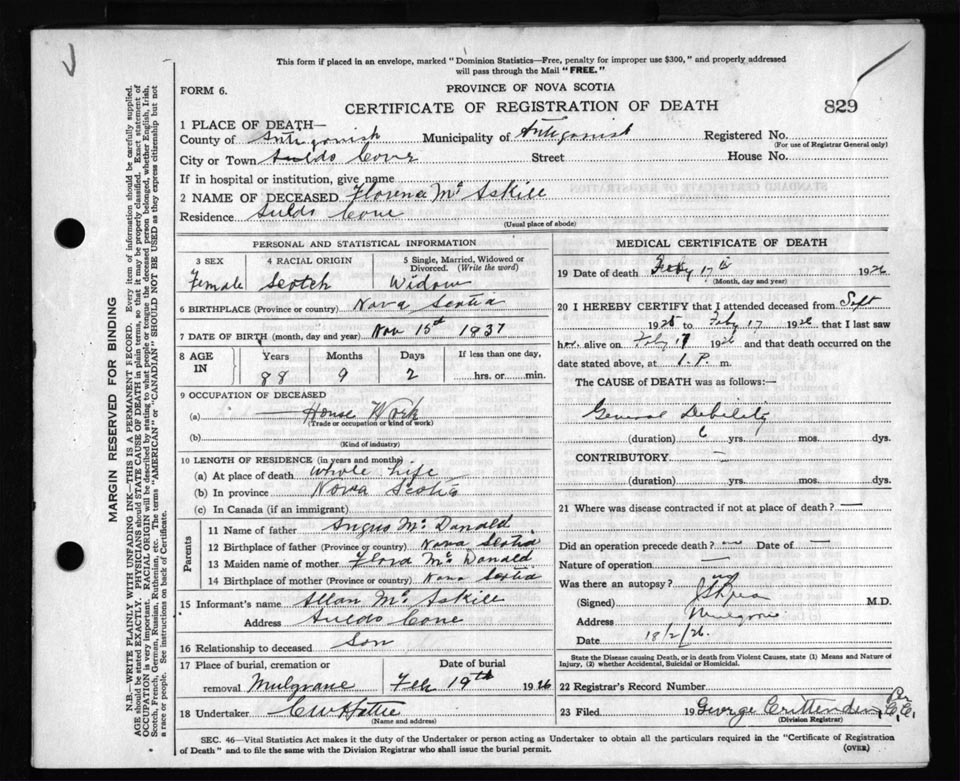 This form if placed in an envelope, marked "Dominion Statistics—Free, penalty for improper use $300," and properly addressed
will pass through the Mail "FREE."
FORM 6.
PROVINCE OF NOVA SCOTIA
CERTIFICATE OF REGISTRATION OF DEATH
829
1 PLACE OF DEATH—
County of Antigonish Municipality of Antigonish Registered No.
(For use of Registrar General only)
City or Town Aulds Cove Street House No.
If in hospital or institution, give name
2 NAME OF DECEASED Florena Mc Askill
Residence Aulds Cove
(Usual place of abode)
PERSONAL AND STATISTICAL INFORMATION
3 SEX 4 RACIAL ORIGIN 5 Single, Married, Widowed or
Divorced. (Write the word)
Female Scotch Widow
6 BIRTHPLACE (Province or country) Nova Scotia
7 DATE OF BIRTH (month, day and year) Nov 15th 1837
8 AGE IN Years Months Days If less than one day,
88 9 2 hrs. or min.
9 OCCUPATION OF DECEASED
(a) — House Work
(Trade or occupation or kind of work)
(b)
(Kind of industry)
10 LENGTH OF RESIDENCE (in years and months)
(a) At place of death Whole Life
(b) In province Nova Scotia
(c) In Canada (if an immigrant)
Parents
11 Name of father Angus Mc Donald
12 Birthplace of father (Province or country) Nova Scotia
13 Maiden name of mother Flora Mc Donald
14 Birthplace of mother (Province or country) Nova Scotia
15 Informant's name Allan Mc Askill
Address Aulds Cove
16 Relationship to deceased Son
17 Place of burial, cremation or Date of burial
removal Mulgrave Feb 19th 1926
18 Undertaker
(Name and address)
MEDICAL CERTIFICATE OF DEATH
19 Date of death Feby 17th 1926
(Month, day and year)
20 I HEREBY CERTIFY that I attended deceased from Sept
1925 to Feby 17 1926 that I last saw
her alive on Feby 17 1926 and that death occurred on the
date stated above, at 1. P. m.
The CAUSE of DEATH was as follows:—
General Debility
(duration) 6 yrs. mos. dys.
CONTRIBUTORY —
(duration) yrs. mos. dys.
21 Where was disease contracted if not at place of death? —
Did an operation precede death? — Date of —
Nature of operation —
Was there an autopsy? no
(Signed) M.D.
Address Mulgrave
Date 18/2/26.
State the Disease causing Death, or in death from Violent Causes, state (1) Means and Nature of
Injury, (2) whether Accidental, Suicidal or Homicidal.
22 Registrar's Record Number
23 Filed 19 George Crittenden Per C.C.
(Division Registrar)
SEC. 46—Vital Statistics Act makes it the duty of the Undertaker or person acting as Undertaker to obtain all the particulars required in the "Certificate of Registration
of Death" and to file the same with the Division Registrar who shall issue the burial permit.
(OVER)
MARGIN RESERVED FOR BINDING
N.B.—WRITE PLAINLY WITH UNFADING INK—THIS IS A PERMANENT RECORD. Every item of information should be carefully supplied.
AGE should be stated EXACTLY. PHYSICIANS should STATE CAUSE OF DEATH in plain terms, so that it may be properly classified. Exact statement of
OCCUPATION is very important. RACIAL ORIGIN will be described by stating to what people or tongue the deceased person belonged, whether English, Irish,
Scotch, French, German, Russian, Ruthenian, etc. The terms "AMERICAN" or "CANADIAN" SHOULD NOT BE USED as they express citizenship but not
a race or people. See instructions on back of Certificate.